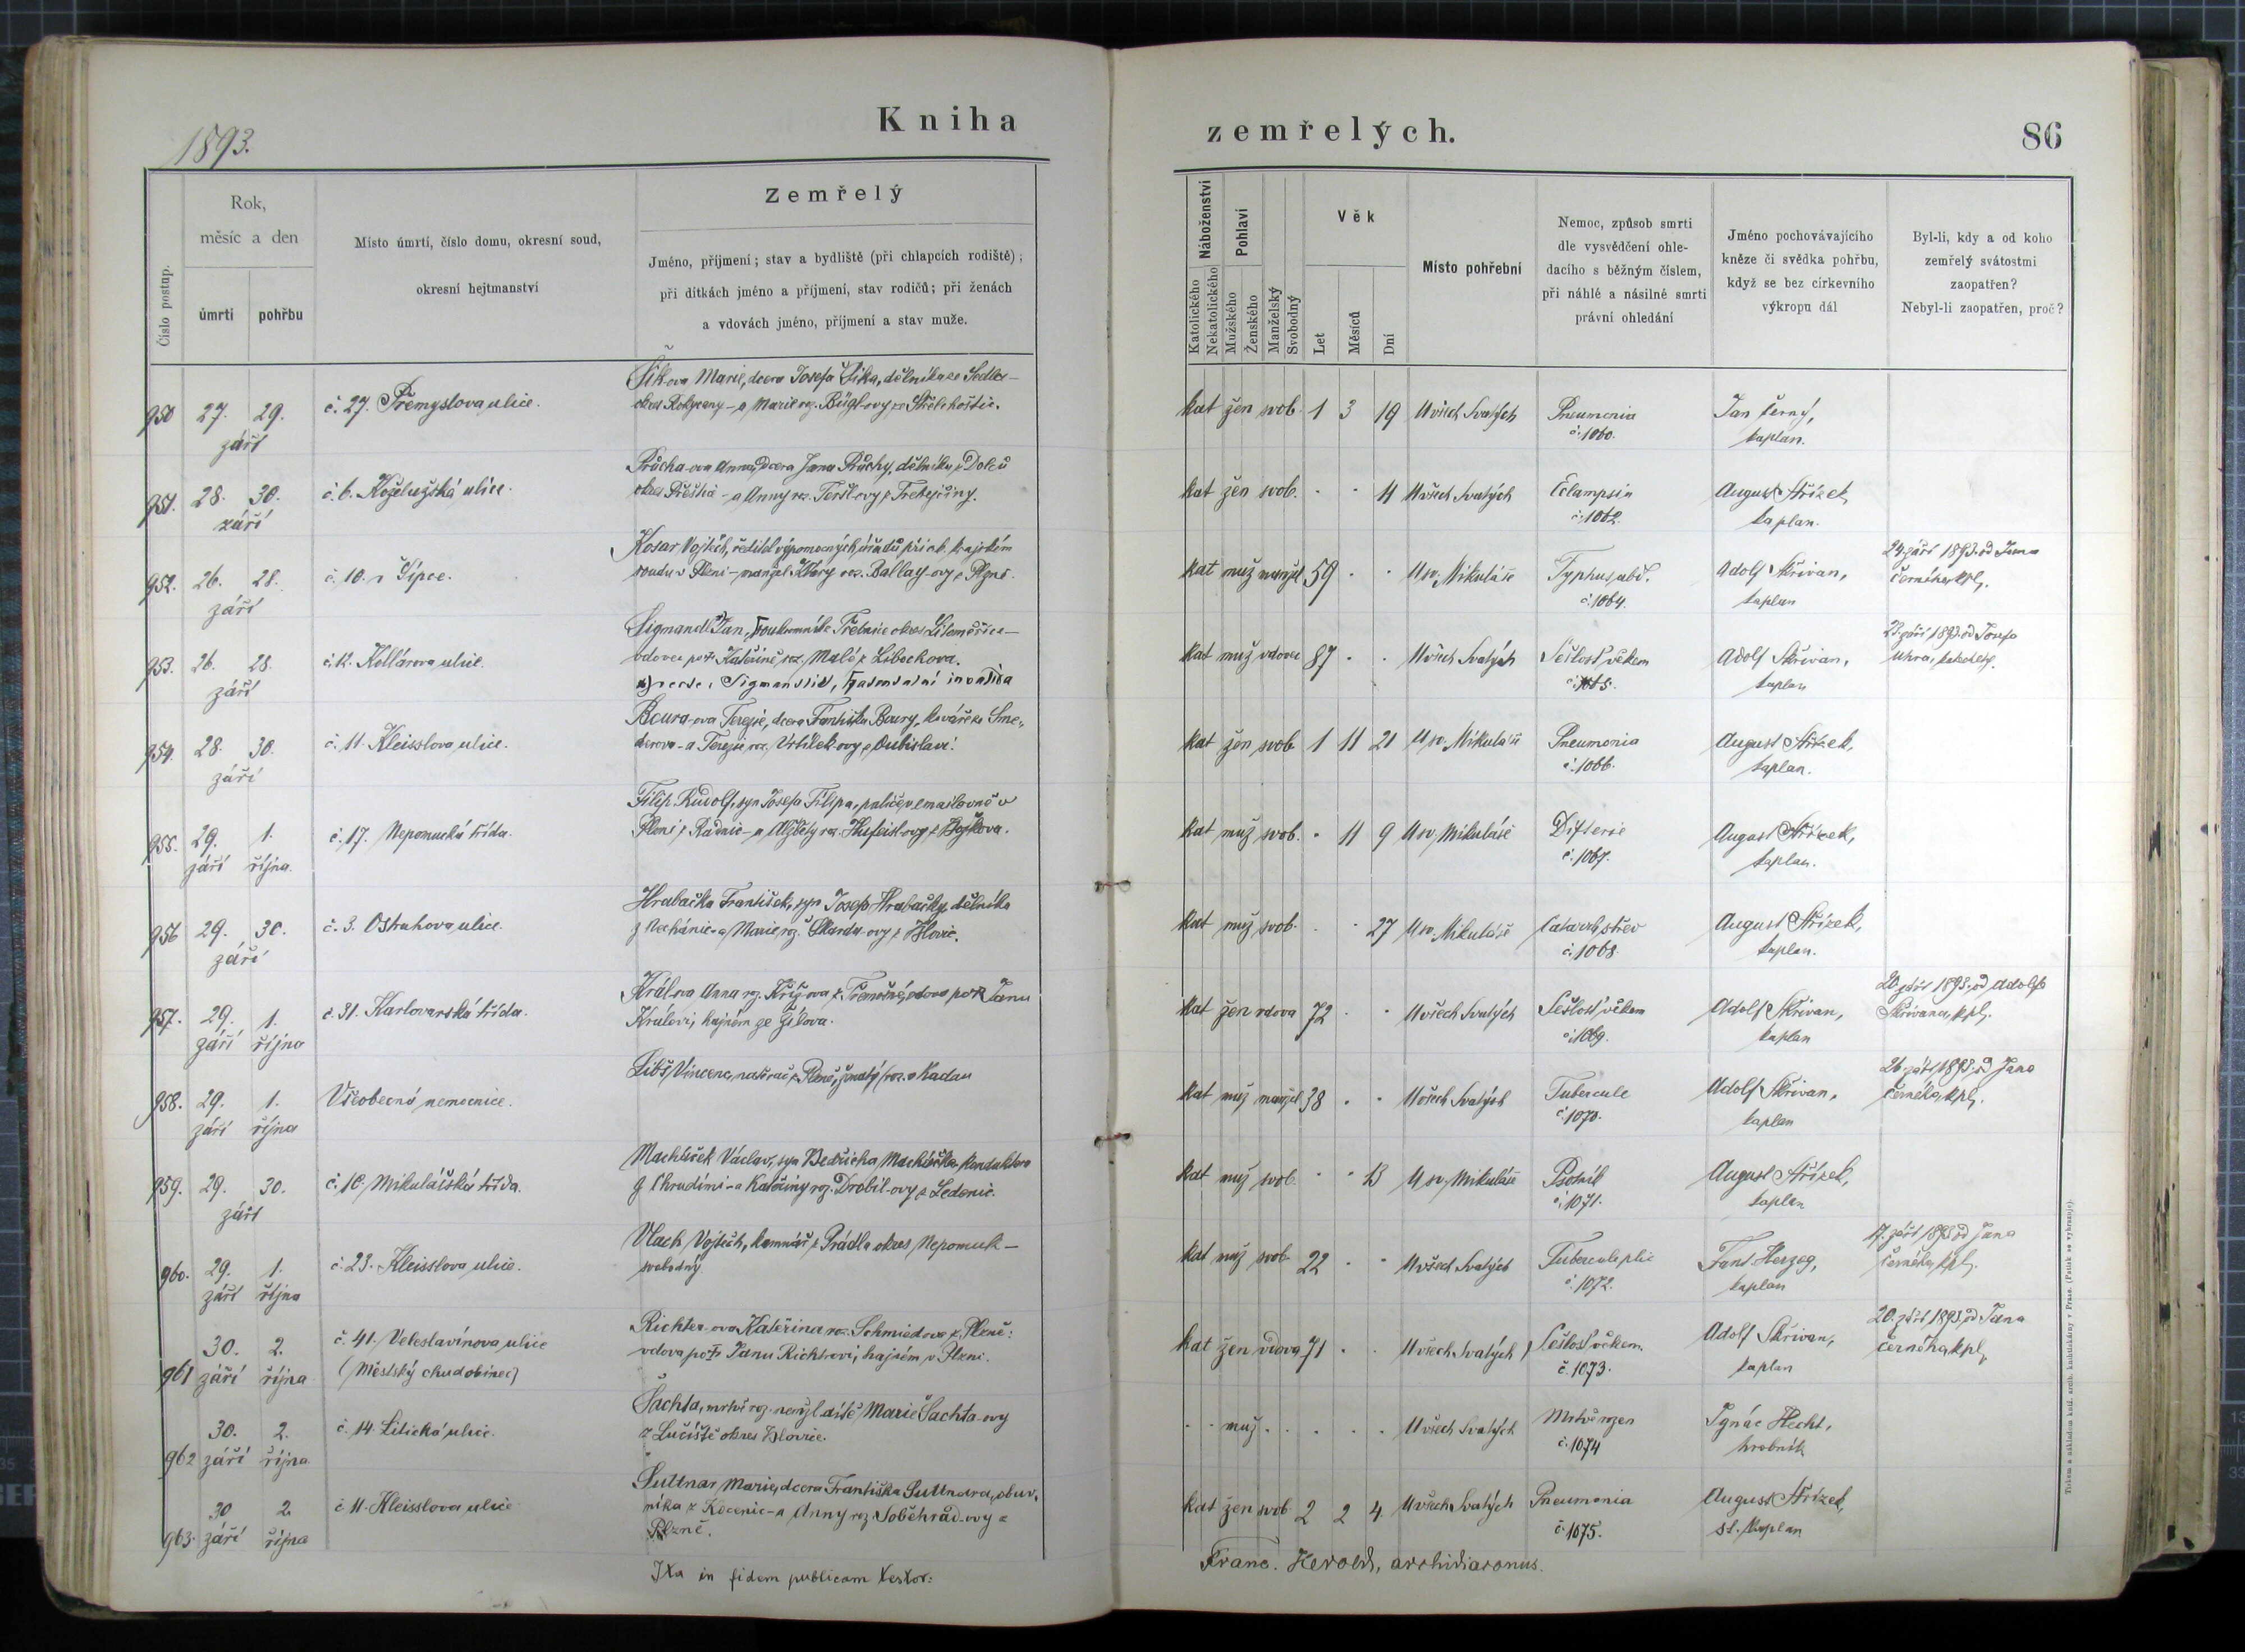 1893.
Kniha
Číslo postup.
Rok,
měsíc a den
úmrtí
pohřbu
Místo úmrtí, číslo domu, okresní soud,
okresní hejtmanství
Zemřelý
Jméno, příjmení; stav a bydliště (při chlapcích rodiště);
při dítkách jméno a příjmení, stav rodičů; při ženách
a vdovách jméno, příjmení a stav muže.
950 27. 29. č. 27. Přemyslova ulice.
září
Šík-ova Marie, dcera Josefa Šíka, dělníka ze Sedlce
okres Rokycany - a Marie roz.
951. 28. 30. č. 6. Koželužská ulice.
září
Průcha-ova Anna, dcera Jana Průchy, dělníka z Dolců
okres Přeštice - a Anny roz.
952. 26. 28. č. 10. v Šípce.
září
Kosař Vojtěch, ředitel výpomocných úřadů při c.k. krajském
soudu v Plzni - manžel Kláry roz. Ballay-ovy z Plzně.
953. 26. 28. č. 12. Kollárova ulice.
září
Sigmandl Jan, soukromník z Třebnic okres Litoměřice -
vdovec po + Kateřině roz. Malé z Liběchova.
954. 28. 30. č. 11. Kleisslova ulice.
září
Boura-ova Terezie, dcera Františka Boury, kováře ze Sme-
derova - a Terezie roz.
955. 29. 1. č. 17. Nepomucká třída.
září října.
Filip Rudolf, syn Josefa Filipa,
Plzni z Radnic - a Alžběty roz.
956 29. 30. č. 3. Ostruhova ulice.
září
Hrabačka František, syn Josefa Hrabačky, dělníka
z Nechanic - a Marie roz.
957. 29. 1. č. 31. Karlovarská třída.
září října
Král-ova Anna roz. Křížova z Třemošné, vdova po + Janu
Královi, hajném ze Žilova.
958. 29. 1. Všeobecná nemocnice.
září října
Vincenc, natěrač z Plzně, ženatý, roz. v Kadani
959. 29. 30. č. 10. Mikulášská třída.
září
Macháček Václav, syn Bedřicha Macháčka, konduktora
z Chrudimi - a Kateřiny roz. Drobil-ovy z Ledenic.
960. 29. 1. č. 23. Kleisslova ulice.
září října
Vlach Vojtěch, kamnář z Prádla okres Nepomuk -
svobodný
961 30. 2. č. 41. Veleslavínova ulice
září října (Městský chudobinec)
Richter-ova Kateřina roz. Schmiedova z Plzně:
vdova po + Janu Richtrovi, hajném v Plzni.
962 30. 2. č. 14. Litická ulice.
září října
Šachta, mrtvě roz. nemanž. dítě Marie Šachta-ovy
z Lučiště okres Blovice.
963. 30 2. č 11. Kleisslova ulice
září října
Suttnar Marie, dcera Františka Suttnara, obuv-
níka z Kocenic - a Anny roz. Soběhrad-ovy z
Plzně.
Ita in fidem publicam testor:
zemřelých.
86
Náboženství
Katolického
Nekatolického
Pohlaví
Mužského
Ženského
Manželský
Svobodný
Věk
Let
Měsíců
Dní
Místo pohřební
Nemoc, způsob smrti
dle vysvědčení ohle-
dacího s běžným číslem,
při náhlé a násilné smrti
právní ohledání
Jméno pochovávajícího
kněze či svědka pohřbu,
když se bez církevního
výkropu dál
Byl-li, kdy a od koho
zemřelý svátostmi
zaopatřen?
Nebyl-li zaopatřen, proč?
kat žen svob. 1 3 19 U všech Svatých Pneumonia Jan Černý,
č. 1060. kaplan.
kat žen svob. . . 11 U všech Svatých Eclampsia August Střízek,
č. 1062. kaplan.
kat muž manžel 59 . . U sv. Mikuláše Typhus abd. Adolf Skřivan, 24. září 1893. od Jana
č. 1064. kaplan Černého, kpl.
kat muž vdovec 87 . . U všech Svatých Sešlosť věkem Adolf Skřivan, 23. září 1893. od Josefa
č. 1065. kaplan Uhra, katechety.
kat žen svob. 1 11 21 U sv. Mikuláše Pneumonia August Střízek,
č. 1066. kaplan.
kat muž svob. . 11 9 U sv. Mikuláše Difterie August Střízek,
č. 1067. kaplan.
kat muž svob. . . 27 U sv. Mikuláše Catarrh střev August Střízek,
č. 1068. kaplan.
kat žen vdova 72 . . U všech Svatých Sešlosť věkem Adolf Skřivan, 20. září 1893. od Adolfa
č. 1069. kaplan Skřivana, kpl.
kat muž manžel 38 . . U všech Svatých Tubercule Adolf Skřivan, 26. září 1893. od Jana
č. 1070. kaplan Černého, kpl.
kat muž svob. . . 13 U sv. Mikuláše Psotník August Střízek,
č. 1071. kaplan
kat muž svob. 22 . . U všech Svatých Tubercule plic Frant. Herzog, 17. září 1893 od Jana
č. 1072. kaplan Černého, kpl.
kat žen vdova 71 . . U všech Svatých Sešlosť věkem Adolf Skřivan, 20. září 1893, od Jana
č. 1073. kaplan Černého, kpl.
. . muž . . . . . U všech Svatých Mrtvě rozen Ignác Hecht,
č. 1074 hrobník
kat žen svob. 2 2 4. U všech Svatých Pneumonia August Střízek,
č. 1075. st. kaplan
Franc. Herold, archidiaconus.
Tiskem a nákladem kníž. arcib. knihtiskárny v Praze. (Patisk se vyhrazuje)